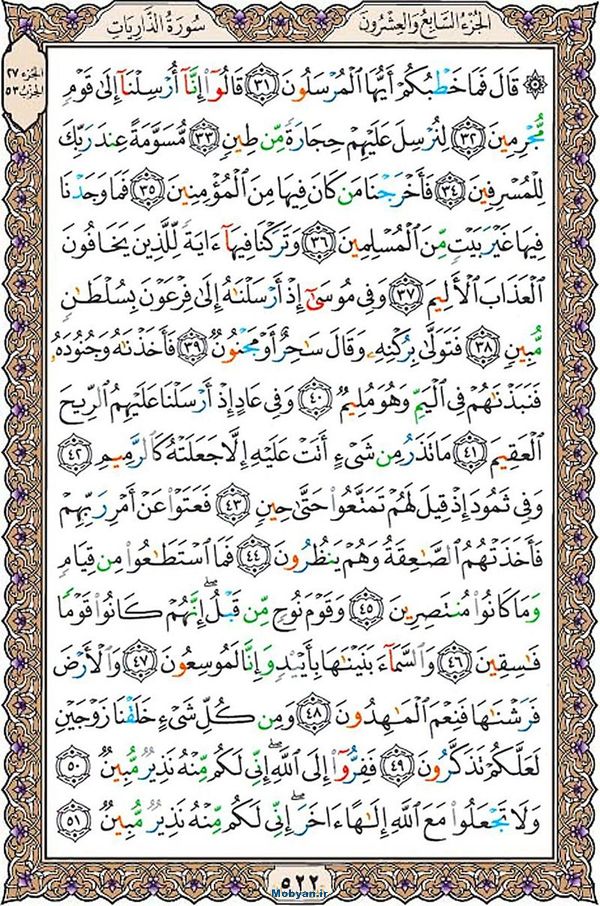 الجُزءُ السَّابِعُ وَالعِشْرُونَ
سُورَةُ الذَّارِيَاتِ
الجزء ٢٧
الحزب ٥٣
۞ قَالَ فَمَا خَطْبُكُمْ أَيُّهَا ٱلْمُرْسَلُونَ ٣١ قَالُوٓا۟ إِنَّآ أُرْسِلْنَآ إِلَىٰ قَوْمٍ
مُّجْرِمِينَ ٣٢ لِنُرْسِلَ عَلَيْهِمْ حِجَارَةً مِّن طِينٍ ٣٣ مُّسَوَّمَةً عِندَ رَبِّكَ
لِلْمُسْرِفِينَ ٣٤ فَأَخْرَجْنَا مَن كَانَ فِيهَا مِنَ ٱلْمُؤْمِنِينَ ٣٥ فَمَا وَجَدْنَا
فِيهَا غَيْرَ بَيْتٍ مِّنَ ٱلْمُسْلِمِينَ ٣٦ وَتَرَكْنَا فِيهَآ ءَايَةً لِّلَّذِينَ يَخَافُونَ
ٱلْعَذَابَ ٱلْأَلِيمَ ٣٧ وَفِى مُوسَىٰٓ إِذْ أَرْسَلْنَٰهُ إِلَىٰ فِرْعَوْنَ بِسُلْطَٰنٍ
مُّبِينٍ ٣٨ فَتَوَلَّىٰ بِرُكْنِهِۦ وَقَالَ سَٰحِرٌ أَوْ مَجْنُونٌ ٣٩ فَأَخَذْنَٰهُ وَجُنُودَهُۥ
فَنَبَذْنَٰهُمْ فِى ٱلْيَمِّ وَهُوَ مُلِيمٌ ٤٠ وَفِى عَادٍ إِذْ أَرْسَلْنَا عَلَيْهِمُ ٱلرِّيحَ
ٱلْعَقِيمَ ٤١ مَا تَذَرُ مِن شَىْءٍ أَتَتْ عَلَيْهِ إِلَّا جَعَلَتْهُ كَٱلرَّمِيمِ ٤٢
وَفِى ثَمُودَ إِذْ قِيلَ لَهُمْ تَمَتَّعُوا۟ حَتَّىٰ حِينٍ ٤٣ فَعَتَوْا۟ عَنْ أَمْرِ رَبِّهِمْ
فَأَخَذَتْهُمُ ٱلصَّٰعِقَةُ وَهُمْ يَنظُرُونَ ٤٤ فَمَا ٱسْتَطَٰعُوا۟ مِن قِيَامٍ
وَمَا كَانُوا۟ مُنتَصِرِينَ ٤٥ وَقَوْمَ نُوحٍ مِّن قَبْلُ ۖ إِنَّهُمْ كَانُوا۟ قَوْمًا
فَٰسِقِينَ ٤٦ وَٱلسَّمَآءَ بَنَيْنَٰهَا بِأَيْي۟دٍ وَإِنَّا لَمُوسِعُونَ ٤٧ وَٱلْأَرْضَ
فَرَشْنَٰهَا فَنِعْمَ ٱلْمَٰهِدُونَ ٤٨ وَمِن كُلِّ شَىْءٍ خَلَقْنَا زَوْجَيْنِ
لَعَلَّكُمْ تَذَكَّرُونَ ٤٩ فَفِرُّوٓا۟ إِلَى ٱللَّهِ ۖ إِنِّى لَكُم مِّنْهُ نَذِيرٌ مُّبِينٌ ٥٠
وَلَا تَجْعَلُوا۟ مَعَ ٱللَّهِ إِلَٰهًا ءَاخَرَ ۖ إِنِّى لَكُم مِّنْهُ نَذِيرٌ مُّبِينٌ ٥١
٥٢٢
Mobyan.ir